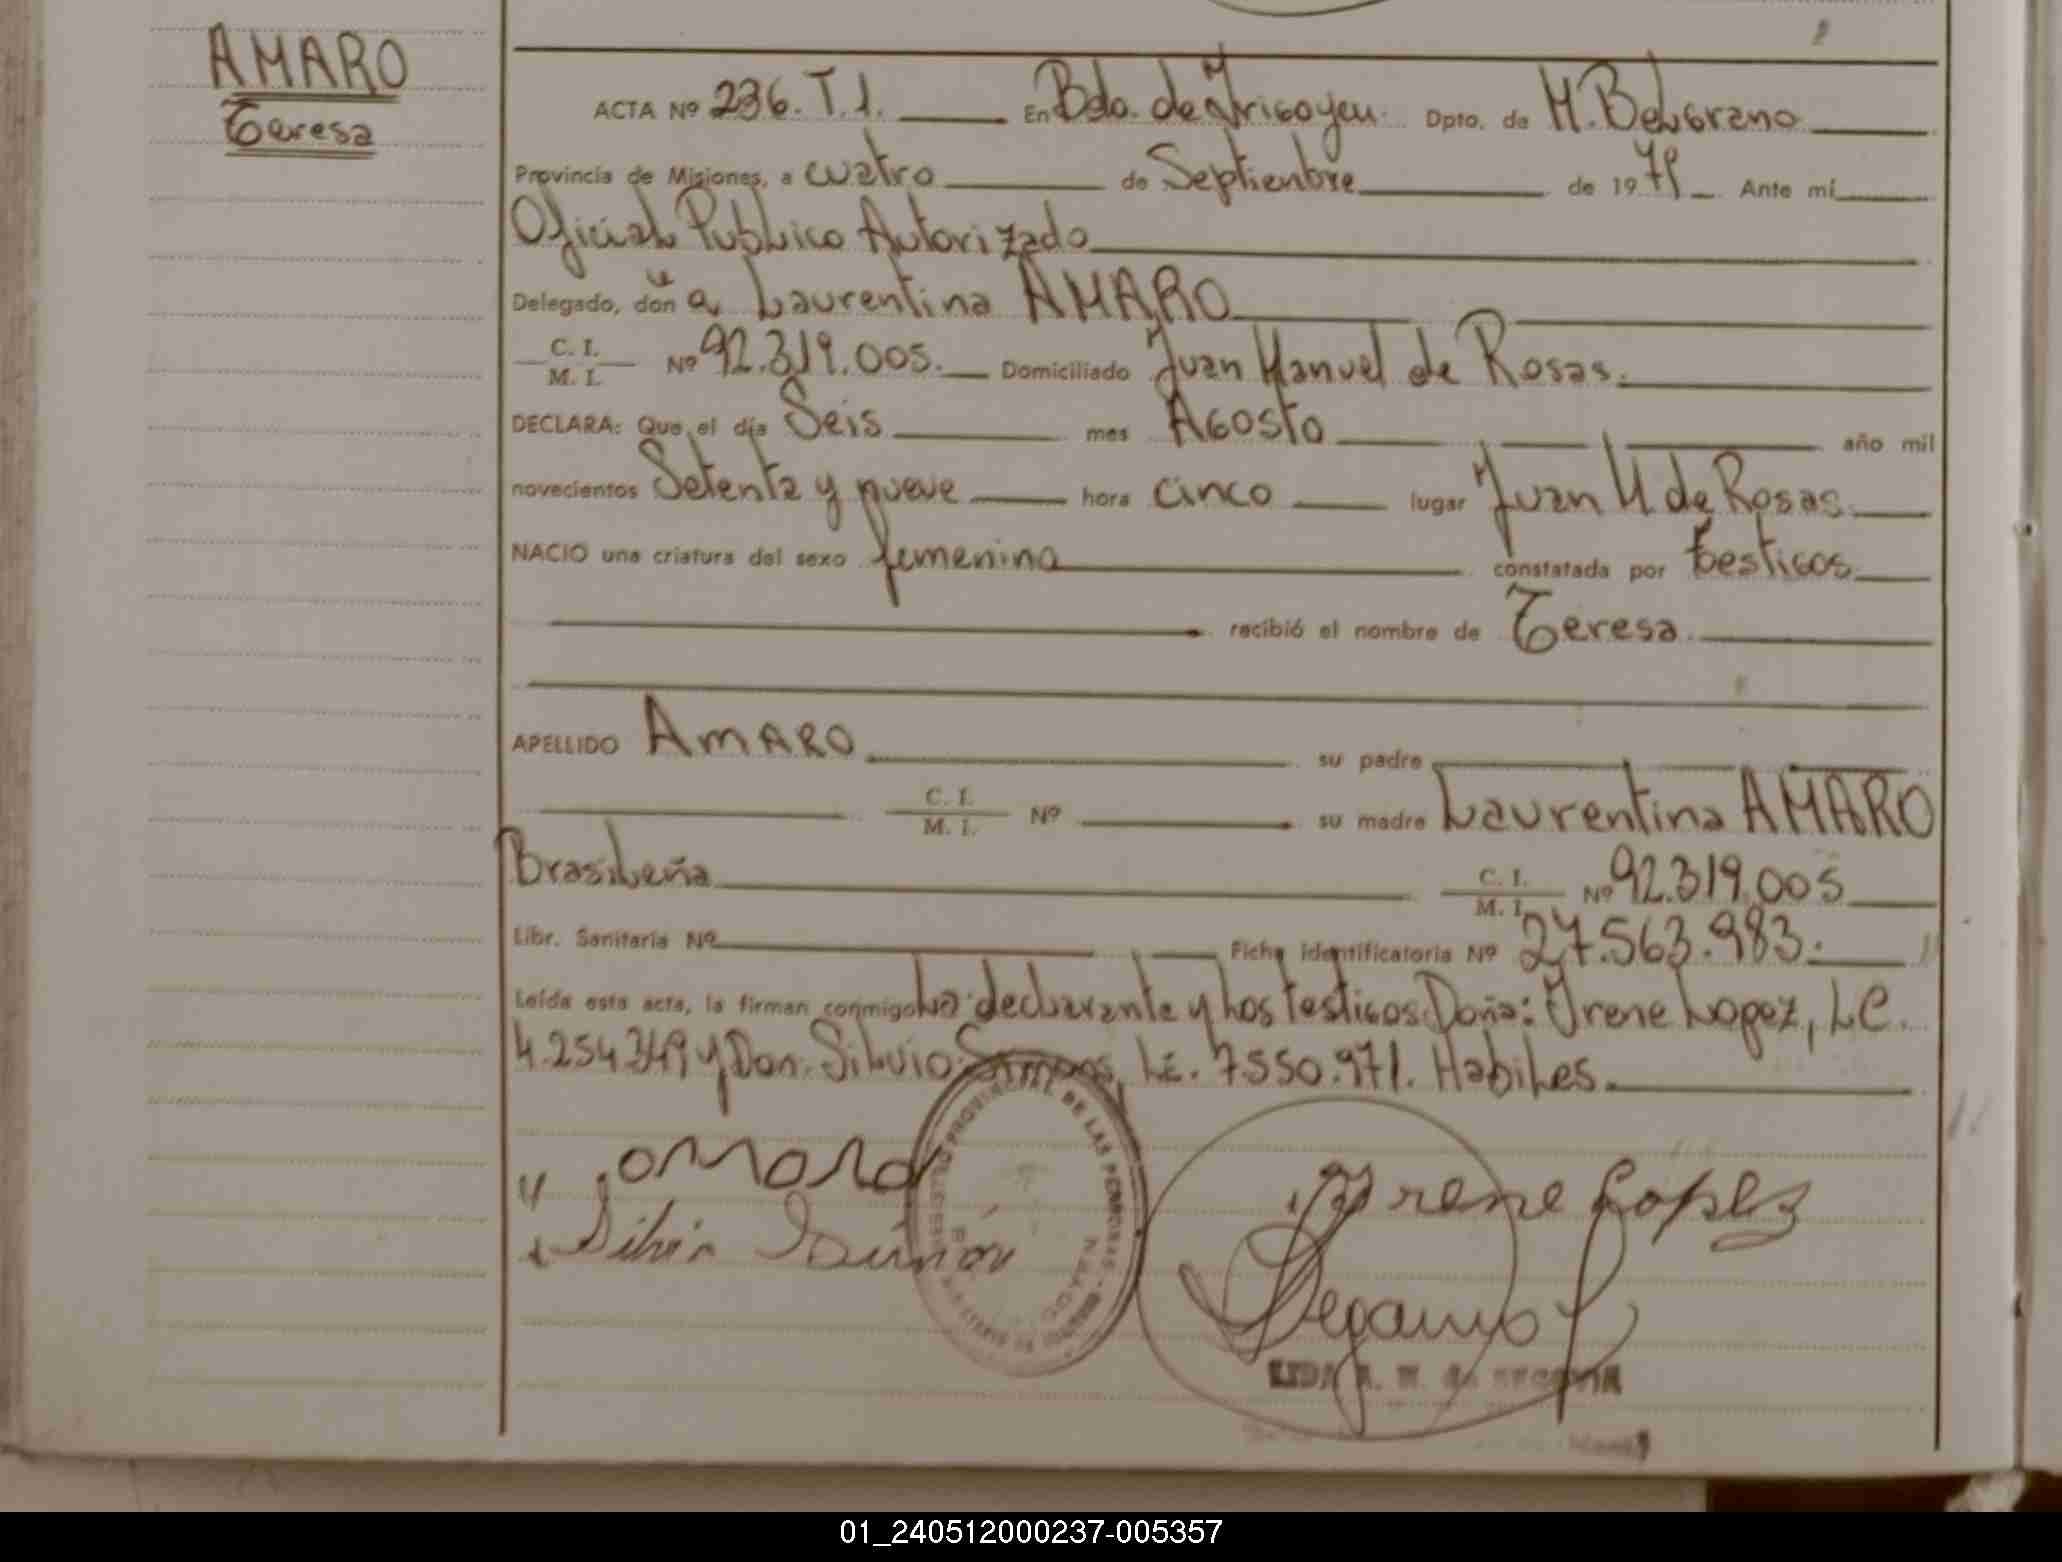 AMARO
Teresa
ACTA Nº 236. T. 1. En Bdo. de Yrigoyen. Dpto. de M. Belgrano
Provincia de Misiones, a cuatro de Septienbre de 1979 Ante mí
Oficial Publico Autorizado
Delegado, don a Laurentina AMARO
C. I. M. I. Nº 92.319.005. Domiciliado Juan Manuel de Rosas.
DECLARA: Que el día Seis mes Agosto año mil
novecientos Setenta y nueve hora cinco lugar Juan M. de Rosas.
NACIO una criatura del sexo femenina constatada por testigos
recibió el nombre de Teresa
APELLIDO AMARO su padre
C. I. M. I. Nº su madre Laurentina AMARO
Brasileña C. I. M. I. Nº 92.319.005
Libr. Sanitaria Nº Ficha identificatoria Nº 27.563.983.
Leída esta acta, la firman conmigo La declarante y los testigos Doña: Irene Lopez, L.C.
4.254.349 y Don. Silvio L.E. 7.550.971. Habiles.
Irene Lopez
PROVINCIAL DE LAS PERSONAS
01_240512000237-005357